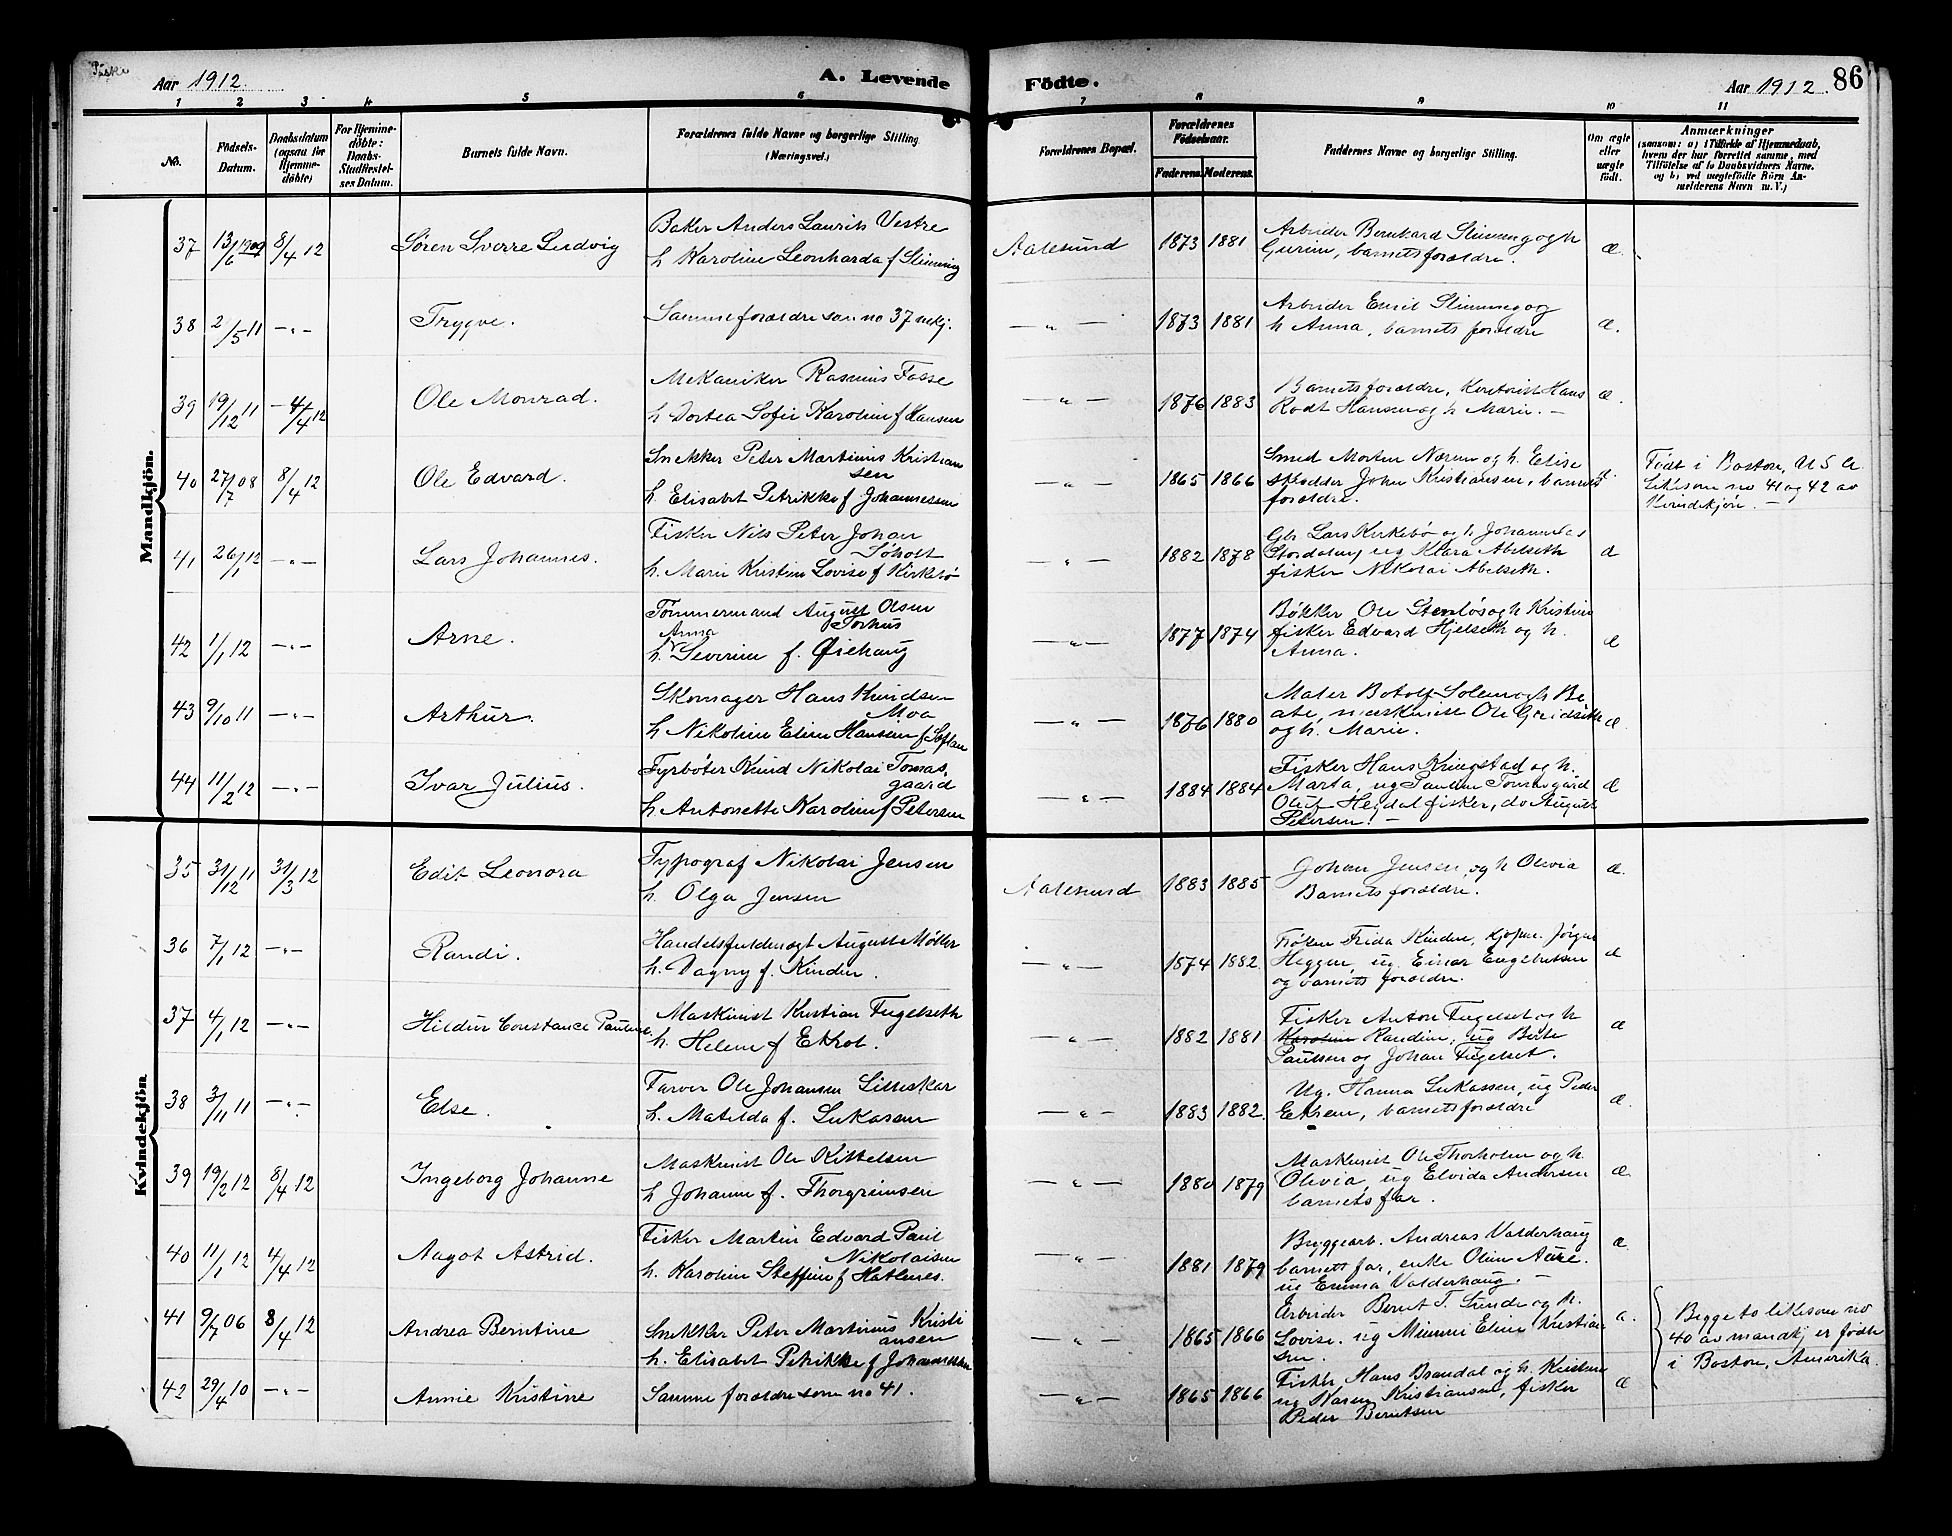 Aar 1912.
A. Levende Födte.
Aar 1912.
86
1 2 3 4 5 6 7 8 9 10 11
No.
Födsels-
Datum.
Daabsdatum
(ogsaa for
Hjemme-
döbte)
For Hjemme-
döbte:
Daabs-
Stadfæstel-
ses Datum.
Barnets fulde Navn.
Forældrenes fulde Navne og borgerlige Stilling
(Næringsvei.)
Forældrenes Bopæl.
Forældrenes
Födselsaar.
Faderens.
Moderens.
Faddernes Navne og borgerlige Stilling.
Om ægte
eller
uægte
født.
Anmærkninger
(saasom: a) i Tilfælde af Hjemmedaab,
hvem der har forrettet samme, med
Tilföielse af to Daabsvidners Navne.
og b) ved uægtefödte Börn An-
melderens Navn m. V.)
Mandkjön.
37 13/6 1909 8/4 12 Søren Sverre Ludvig
Baker Anders Laurits Vestre
h Karoline Leonharda f Slinning
Aalesund 1873 1881
Arbeider Bernhard Slinning og h
Gurine, barnets forældre.
æ.
38 2/5 11 —„— Trygve.
Samme forældre som no 37 mkj.
—„— 1873 1881
Arbeider Emil Slinning og
h Anna, barnets forældre
æ.
39 19/12 11 4/4 12 Ole Monrad.
Mekaniker Rasmus Fosse
h Dortea Sofie Karoline f Hansen
—„— 1876 1883
Barnets forældre, Kontorist Hans
Rodt Hansen og h Marie. —
æ.
40 27/7 08 8/4 12 Ole Edvard.
Snekker Peter Martinus Kristian
sen
h. Elisabet Petrikke f Johannessen
—„— 1865 1866
Smed Morten Nærum og h. Elise
John Kristiansen, barnets
forældre.
Født i Boston, U S A.
Likesom no 41 og 42 av
Kvindekjøn. —
41 26/1 12 —„— Lars Johannes.
Fisker Nils Peter Johan
Søholt
h. Marie Kristine Lovise f Kirkebø
—„— 1882 1878
Gbr Lars Kirkebø og h, Johannes
ug Klara Abelseth
fisker Nikolai Abelseth.
æ
42 1/1 12 —„— Arne.
Tømmermand August Olsen
Torhus
h. Anna Severine f. Øiehaug
—„— 1877 1874
Bøkker Ole Stenløs og h Kristine
fisker Edvard Hjelseth og h.
Anna.
æ
43 9/10 11 —„— Arthur.
Skomager Hans Knudsen
Moa
h Nikoline Eline Hansen f
—„— 1876 1880
Maler Botolf Solem og h Be
ate, maskinist Ole
og h. Marie.
æ.
44 11/2 12 —„— Ivar Julius.
Fyrbøter Knud Nikolai Tomas
gaard
h Antonette Karoline f Petersen
—„— 1884 1884
Fisker Hans Kringstad og h.
Marta, ug Pauline Tomasgård
Oluf Heggdal fisker, do August
Petersen. —
æ
Kvindekjön
35 31/12 11 31/3 12 Edit Leonora
Typograf Nikolai Jensen
h. Olga Jensen
Aalesund 1883 1885
Johan Jensen, og h Olivia
Barnets forældre.
æ.
36 7/1 12 —„— Randi.
Handelsfuldmægt August Møller
h. Dagny f. Kindin.
—„— 1874 1882.
Frøken Frida Kindin, kjøpm. Jørgen
Heggen, ug Einar Engebretsen
og barnets forældre.
æ
37 4/1 12 —„— Hildur Constance Pauline
Maskinist Kristian Fugelseth
h. Helene f Ekrol.
—„— 1882 1881
Fisker Anton Fugelset og h
Karoline Randine, ug Berte
Paulsen og Johan Fugelset.
æ
38 3/11 11 —„— Else.
Farver Ole Johansen Litleskar
h. Matilda f. Lukasen
—„— 1883 1882.
Ug. Hanna Lukassen, ug Peder
Ekrem, barnets forældre
æ.
39 19/2 12 8/4 12 Ingeborg Johanne
Maskinist Ole Kittelsen
h Johanne f. Thorgrimsen
—„— 1880 1879
Maskinist Ole Thorholm og h.
Olivia, ug Elvida Andersen
barnets far.
æ.
40 11/1 12 4/4 12 Aagot Astrid.
Fisker Martin Edvard Paul
Nikolaisen
h. Karoline Steffine f Hatlenes.
—„— 1881 1879
Bryggearb. Andreas Valderhaug
barnets far, enke Oline Aure.
ug Emma Valderhaug. —
æ.
41 9/7 06 8/4 12 Andrea Berntine
Snekker Peter Martinus Kristi
ansen
h. Elisabet Petrikke f Johannessen
—„— 1865 1866
Arbeider Bernt T. Sunde og h.
Lovise. ug Mimmi Eline Kristian
sen.
æ.
Begge to likesom no
40 av mandkj er født
i Boston, Amerika.
42 29/4 10 —„— Annie Kristine
Samme forældre som no 41.
—„— 1865 1866
Fisker Hans Brandal og h. Kristine
ug Karen Kristiansen, fisker
Peder Berntsen
æ